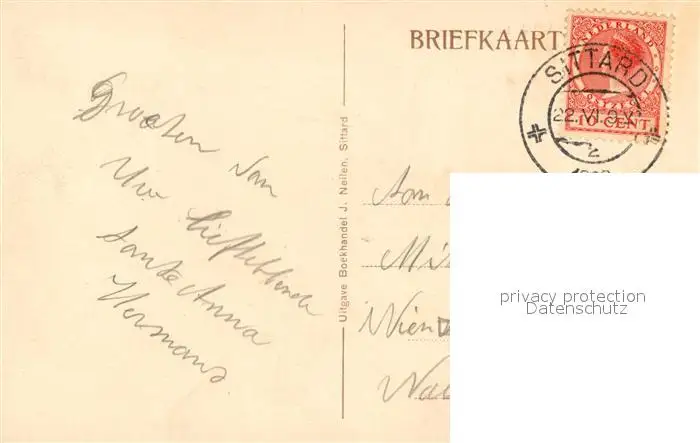 BRIEFKAART
NEDERLAND
10 CENT
SITTARD
22.VI.9.V
2
Groeten van
Uw liefhebbende
tante Anna
Hermans
Uitgave Boekhandel J. Neilen, Sittard
Aan
privacy protection
Datenschutz